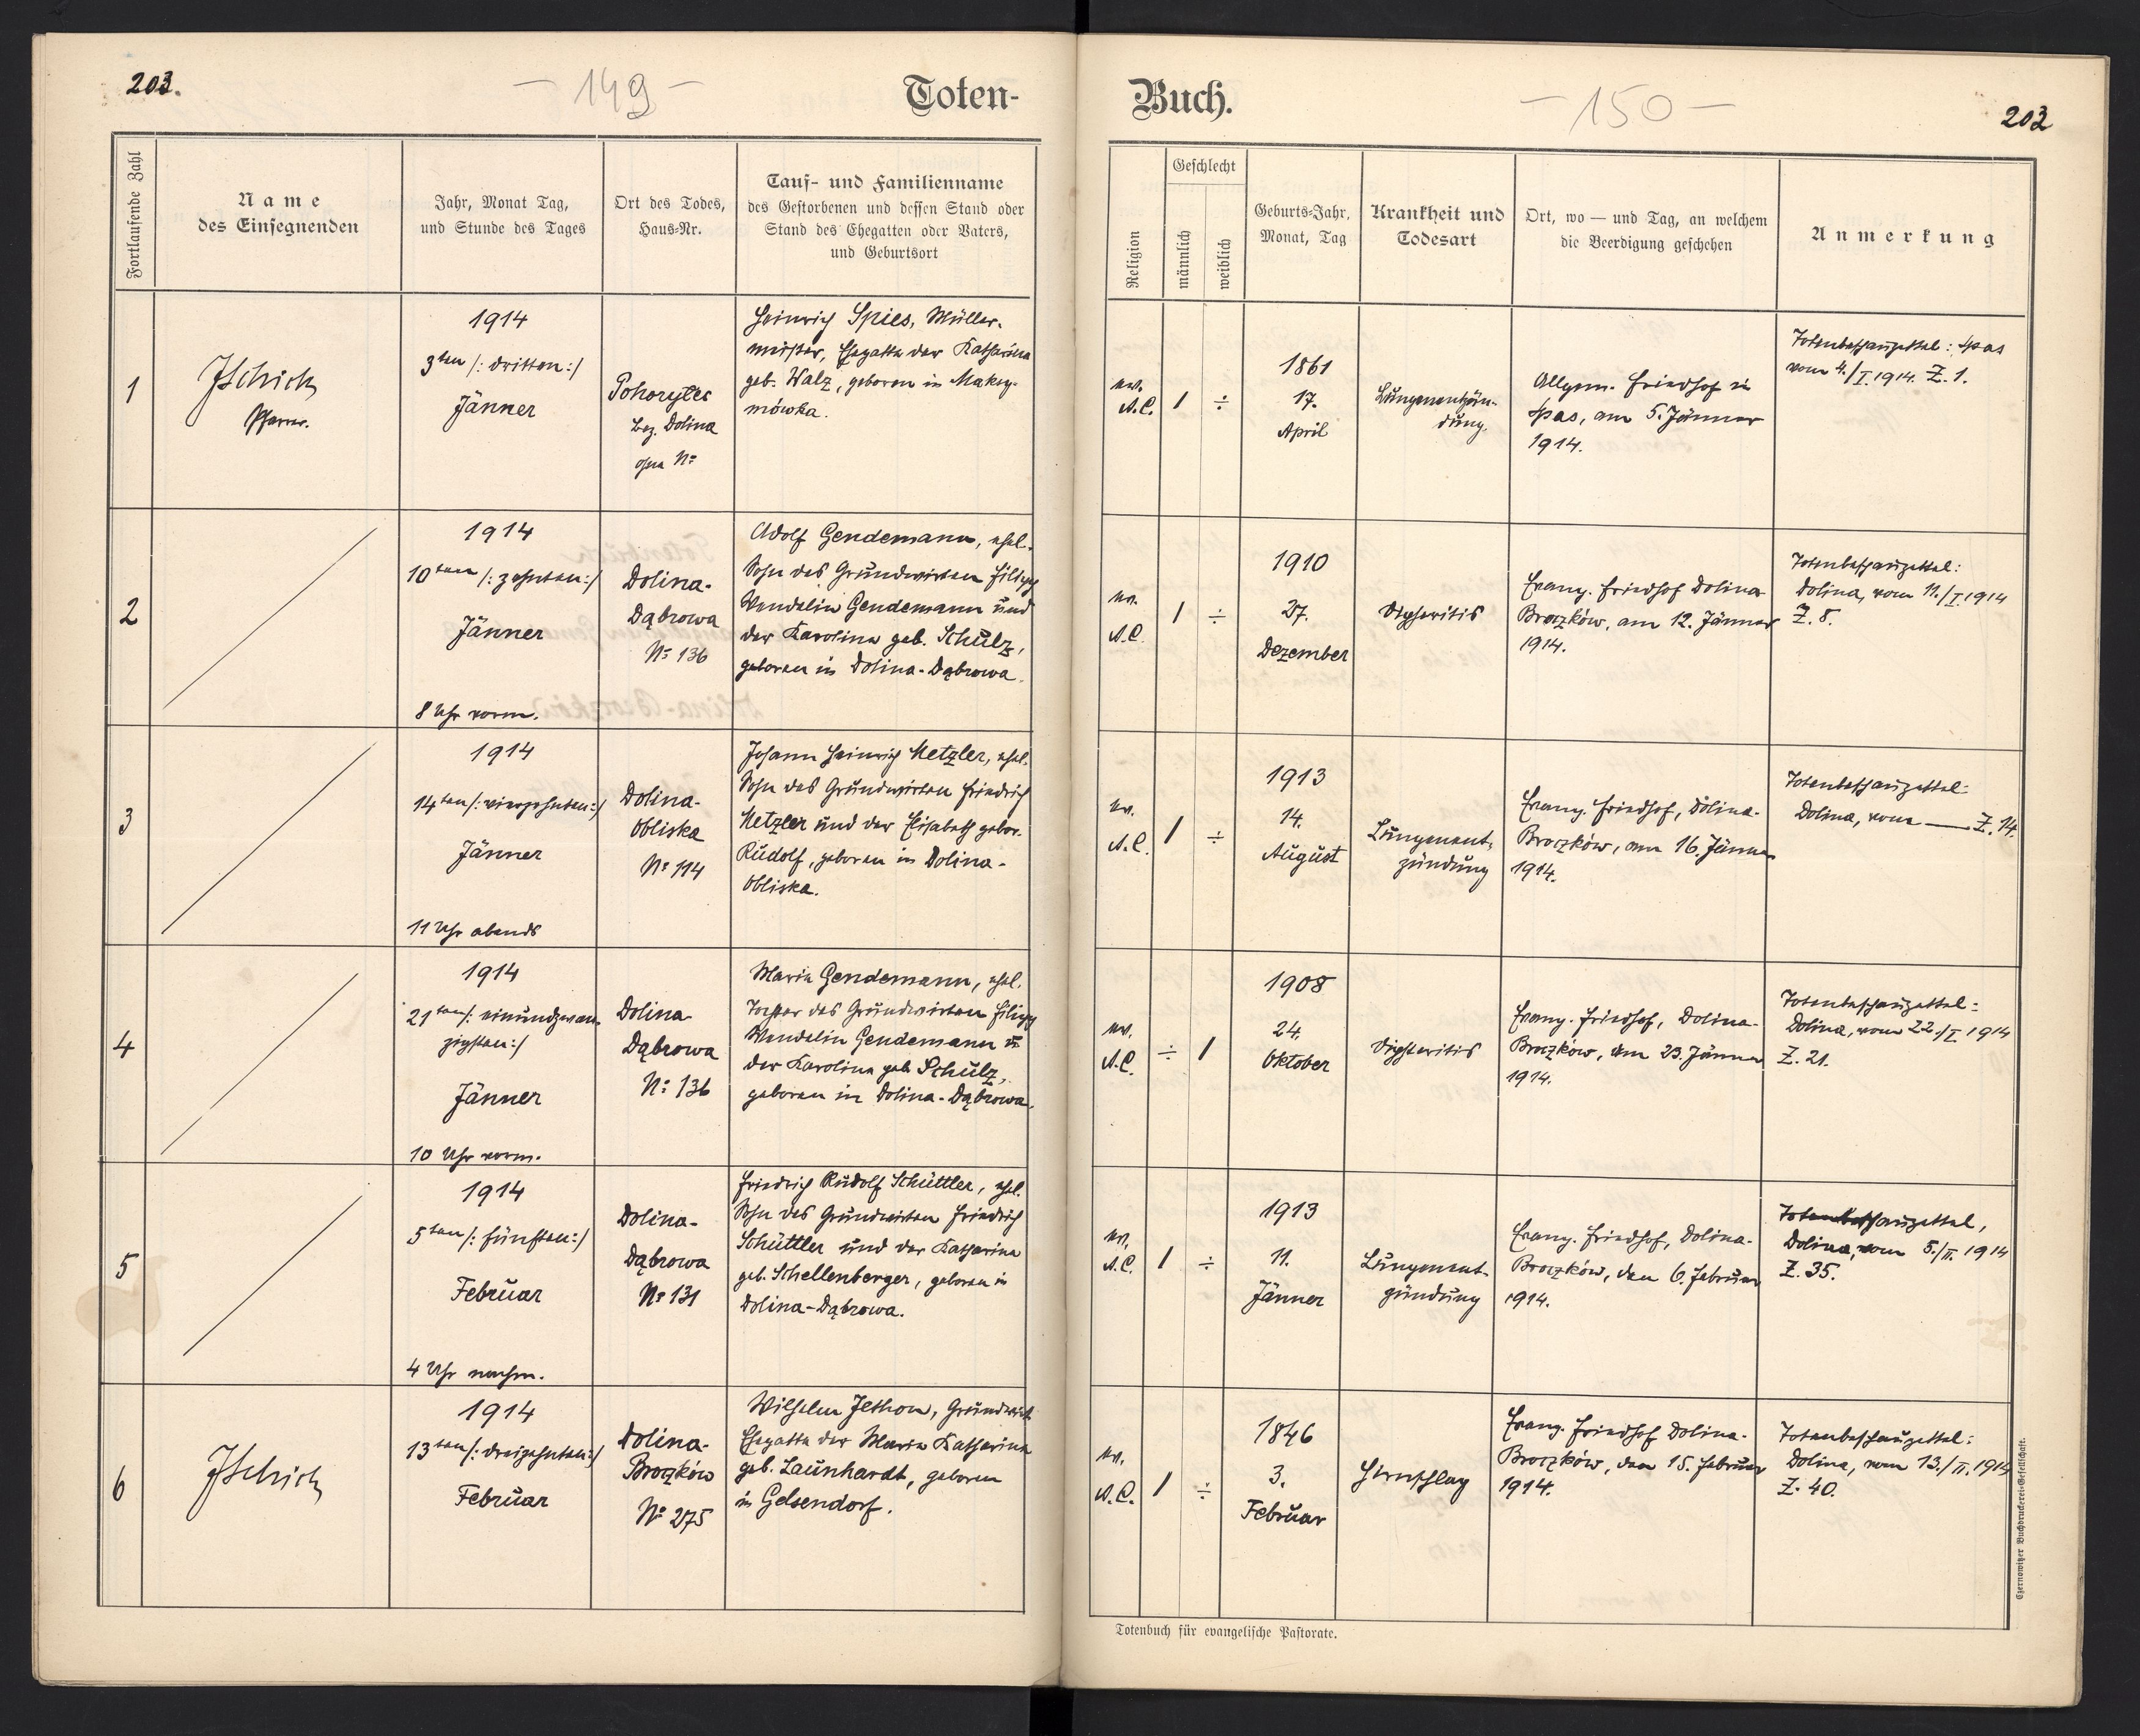 203.
– 149 –
Toten-
Fortlaufende Zahl
Name
des Einsegnenden
Jahr, Monat Tag,
und Stunde des Tages
Ort des Todes,
Haus-Nr.
Tauf- und Familienname
des Gestorbenen und dessen Stand oder
Stand des Ehegatten oder Vaters,
und Geburtsort
1
Pfarrer.
1914
3ten /: dritten :/
Jänner
Pohorylec
Bez. Dolina
ohne No
Heinrich Spies, Müller-
meister, Ehegatte der Katharina
geb. Walz, geboren in Maksy-
mówka.
2
1914
10ten /: zehnten :/
Jänner
8 Uhr vorm.
Dolina-
Dąbrowa
No 136
Adolf Gendemann, ehel.
Sohn des Grundwirten Filipp
Wendelin Gendemann und
der Karolina geb. Schulz,
geboren in Dolina-Dąbrowa.
3
1914
14ten /: vierzehnten :/
Jänner
11 Uhr abends
Dolina-
Obliska
No 114
Johann Heinrich Metzler, ehel.
Sohn des Grundwirten Friedrich
Metzler und der Elisabeth gebor.
Rudolf, geboren in Dolina-
Obliska.
4
1914
21ten /: einundzwan-
zigsten :/
Jänner
10 Uhr vorm.
Dolina-
Dąbrowa
No 136
Maria Gendemann, ehel.
Tochter des Grundwirten Filipp
Wendelin Gendemann u.
der Karolina geb. Schulz,
geboren in Dolina-Dąbrowa.
5
1914
5ten /: fünften :/
Februar
4 Uhr nachm.
Dolina-
Dąbrowa
No 131
Friedrich Rudolf Schüttler, ehel.
Sohn des Grundwirten Friedrich
Schüttler und der Katharina
geb. Schellenberger, geboren in
Dolina-Dąbrowa.
6
1914
13ten /: dreizehnten :/
Februar
Dolina-
Broczków
No 275
Wilhelm Jethon, Grundwirt
Ehegatte der Maria Katharina
geb. Launhardt, geboren
in Gelsendorf.
Buch.
– 150 –
203
Religion
Geschlecht
männlich
weiblich
Geburts-Jahr,
Monat, Tag
Krankheit und
Todesart
Ort, wo — und Tag, an welchem
die Beerdigung geschehen
Anmerkung
ev.
A.C.
1
÷
1861
17.
April
Lungenentzün-
dung.
Allgem. Friedhof in
Spas, am 5. Jänner
1914.
Totenbeschauzettel: Spas
vom 4./I. 1914. Z. 1.
ev.
A.C.
1
÷
1910
27.
Dezember
Diphteritis
Evang. Friedhof Dolina-
Broczków, am 12. Jänner
1914.
Totenbeschauzettel:
Dolina, vom 11./I. 1914
Z. 8.
ev.
A.C.
1
÷
1913
14.
August
Lungenent-
zündung
Evang. Friedhof, Dolina-
Broczków, am 16. Jänner
1914.
Totenbeschauzettel:
Dolina, vom — Z. 14.
ev.
A.C.
÷
1
1908
24.
Oktober
Diphteritis
Evang. Friedhof, Dolina-
Broczków, am 23. Jänner
1914.
Totenbeschauzettel:
Dolina, vom 22./I. 1914
Z. 21.
ev.
A.C.
1
÷
1913
11.
Jänner
Lungenent-
zündung
Evang. Friedhof, Dolina-
Broczków, den 6. Februar
1914.
Totenbeschauzettel,
Dolina, vom 5./II. 1914
Z. 35.
ev.
A.C.
1
÷
1846
3.
Februar
Hirnschlag
Evang. Friedhof Dolina-
Broczków, den 15. Februar
1914.
Totenbeschauzettel:
Dolina, vom 13./II. 1914
Z. 40.
Totenbuch für evangelische Pastorate.
Czernowitzer Buchdruckerei-Gesellschaft.